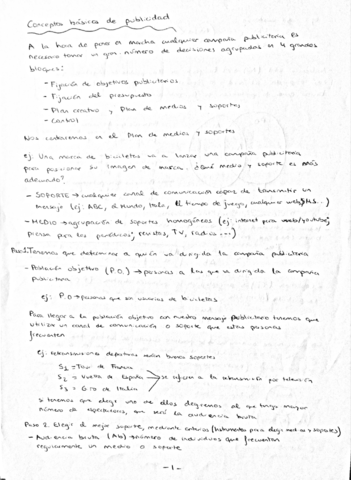 Conceptos básicos de publicidad
A la hora de poner en marcha cualquier campaña publicitaria es
necesario tomar un gran número de decisiones agrupadas en 4 grandes
bloques:
- Fijación de objetivos publicitarios
- Fijación del presupuesto
- Plan creativo y Plan de medios y soportes
- Control
Nos centraremos en el Plan de medios y soportes
ej: Una marca de bicicletas va a lanzar una campaña publicitaria
para posicionar su imagen de marca. ¿Qué medio y soporte es más
adecuado?
- SOPORTE → cualquier canal de comunicación capaz de transmitir un
mensaje (ej: ABC, el Mundo, Hola, el tiempo de juego, cualquier web,...)
- MEDIO → agrupación de soportes homogéneos (ej: internet para webs/youtube,
prensa para los periódicos, revistas, TV, radio...)
Paso 1. Tenemos que determinar a quién va dirigida la campaña publicitaria
- Población objetivo (P.O.) → personas a las que va dirigida la campaña
publicitaria
ej: P.O → personas que son usuarios de bicicletas
Para llegar a la población objetivo con nuestro mensaje publicitario tenemos que
utilizar un canal de comunicación o soporte que estas personas
frecuenten
ej: retransmisiones deportivas serán buenos soportes
S1 = Tour de Francia
S2 = Vuelta de España → se refieren a la retransmisión por televisión
S3 = Giro de Italia
si tenemos que elegir uno de ellos elegiremos al que tenga mayor
número de espectadores, que será la audiencia bruta
Paso 2. Elegir el mejor soporte, mediante criterios (instrumentos para elegir medios y soportes)
- Audiencia bruta (Ab) → número de individuos que frecuentan
regularmente un medio o soporte
- 1 -